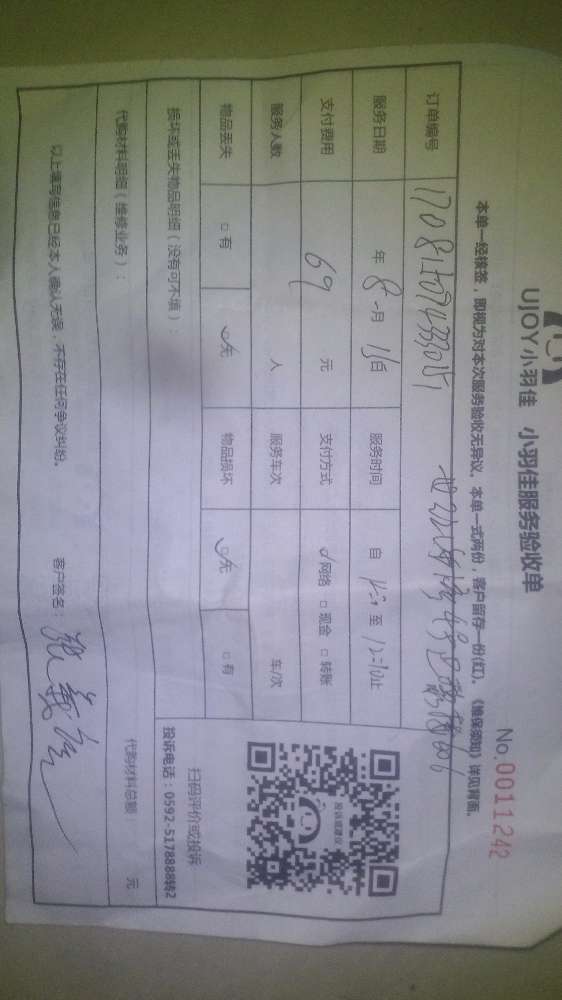 UJOY小羽佳 小羽佳服务验收单
No.0011242
本单一经核签，即视为对本次服务验收无异议。本单一式两份，客户留存一份(红)。《维保须知》详见背面。
订单编号
服务日期 年 8 月 日 服务时间 自 至 12=10止
支付费用 69 元 支付方式 网络 □现金 □转账
服务人数 人 服务车次 车/次
物品丢失 □有 无 物品损坏 无 □有
损坏或丢失物品明细（没有可不填）：
代购材料明细（维修业务）：
代购材料总额 元
投诉或建议
扫码评价或投诉
投诉电话：0592-5178888转2
以上填写信息已经本人确认无误，不存在任何争议纠纷。 客户签名：